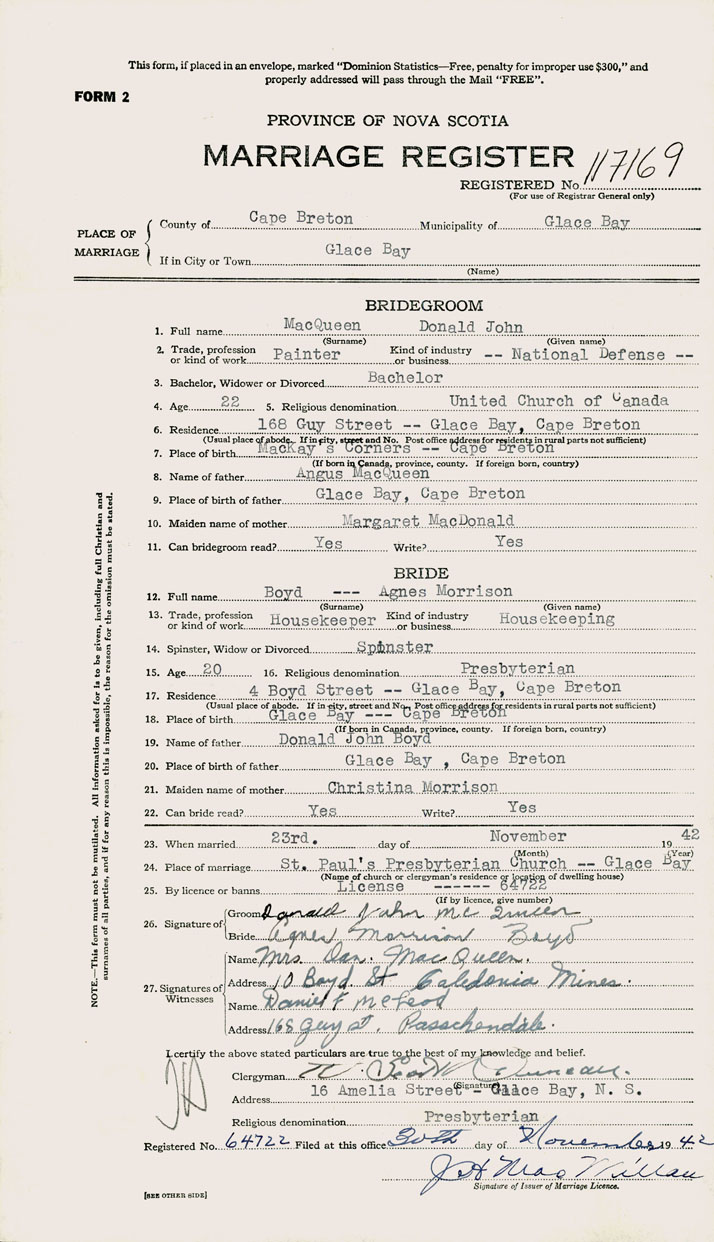 This form, if placed in an envelope, marked "Dominion Statistics—Free, penalty for improper use $300," and
properly addressed will pass through the Mail "FREE".
FORM 2
PROVINCE OF NOVA SCOTIA
MARRIAGE REGISTER
REGISTERED No. 117169
(For use of Registrar General only)
PLACE OF MARRIAGE
County of Cape Breton Municipality of Glace Bay
If in City or Town Glace Bay
(Name)
BRIDEGROOM
1. Full name MacQueen Donald John
(Surname) (Given name)
2. Trade, profession or kind of work Painter Kind of industry or business -- National Defense --
3. Bachelor, Widower or Divorced Bachelor
4. Age 22 5. Religious denomination United Church of Canada
6. Residence 168 Guy Street -- Glace Bay, Cape Breton
(Usual place of abode. If in city, street and No. Post office address for residents in rural parts not sufficient)
7. Place of birth MacKay's Corners -- Cape Breton
(If born in Canada, province, county. If foreign born, country)
8. Name of father Angus MacQueen
9. Place of birth of father Glace Bay, Cape Breton
10. Maiden name of mother Margaret MacDonald
11. Can bridegroom read? Yes Write? Yes
BRIDE
12. Full name Boyd --- Agnes Morrison
(Surname) (Given name)
13. Trade, profession or kind of work Housekeeper Kind of industry or business Housekeeping
14. Spinster, Widow or Divorced Spinster
15. Age 20 16. Religious denomination Presbyterian
17. Residence 4 Boyd Street -- Glace Bay, Cape Breton
(Usual place of abode. If in city, street and No. Post office address for residents in rural parts not sufficient)
18. Place of birth Glace Bay --- Cape Breton
(If born in Canada, province, county. If foreign born, country)
19. Name of father Donald John Boyd
20. Place of birth of father Glace Bay , Cape Breton
21. Maiden name of mother Christina Morrison
22. Can bride read? Yes Write? Yes
23. When married 23rd. day of November 19 42
(Month) (Year)
24. Place of marriage St. Paul's Presbyterian Church -- Glace Bay
(Name of church or clergyman's residence or location of dwelling house)
25. By licence or banns License ------ 64722
(If by licence, give number)
26. Signature of
Groom Donald John Mc Queen
Bride Agnes Morrison Boyd
27. Signatures of Witnesses
Name Mrs. Dan. MacQueen.
Address 10 Boyd. St Caledonia Mines.
Name Daniel F McLeod
Address 168 Guy St. Passchendale.
I certify the above stated particulars are true to the best of my knowledge and belief.
Clergyman
(Signature)
Address 16 Amelia Street - Glace Bay, N. S.
Religious denomination Presbyterian
Registered No. 64722 Filed at this office 30th day of November 19 42
J H MacMillan
Signature of Issuer of Marriage Licence.
[SEE OTHER SIDE]
NOTE.—This form must not be mutilated. All information asked for is to be given, including full Christian and
surnames of all parties, and if for any reason this is impossible, the reason for the omission must be stated.